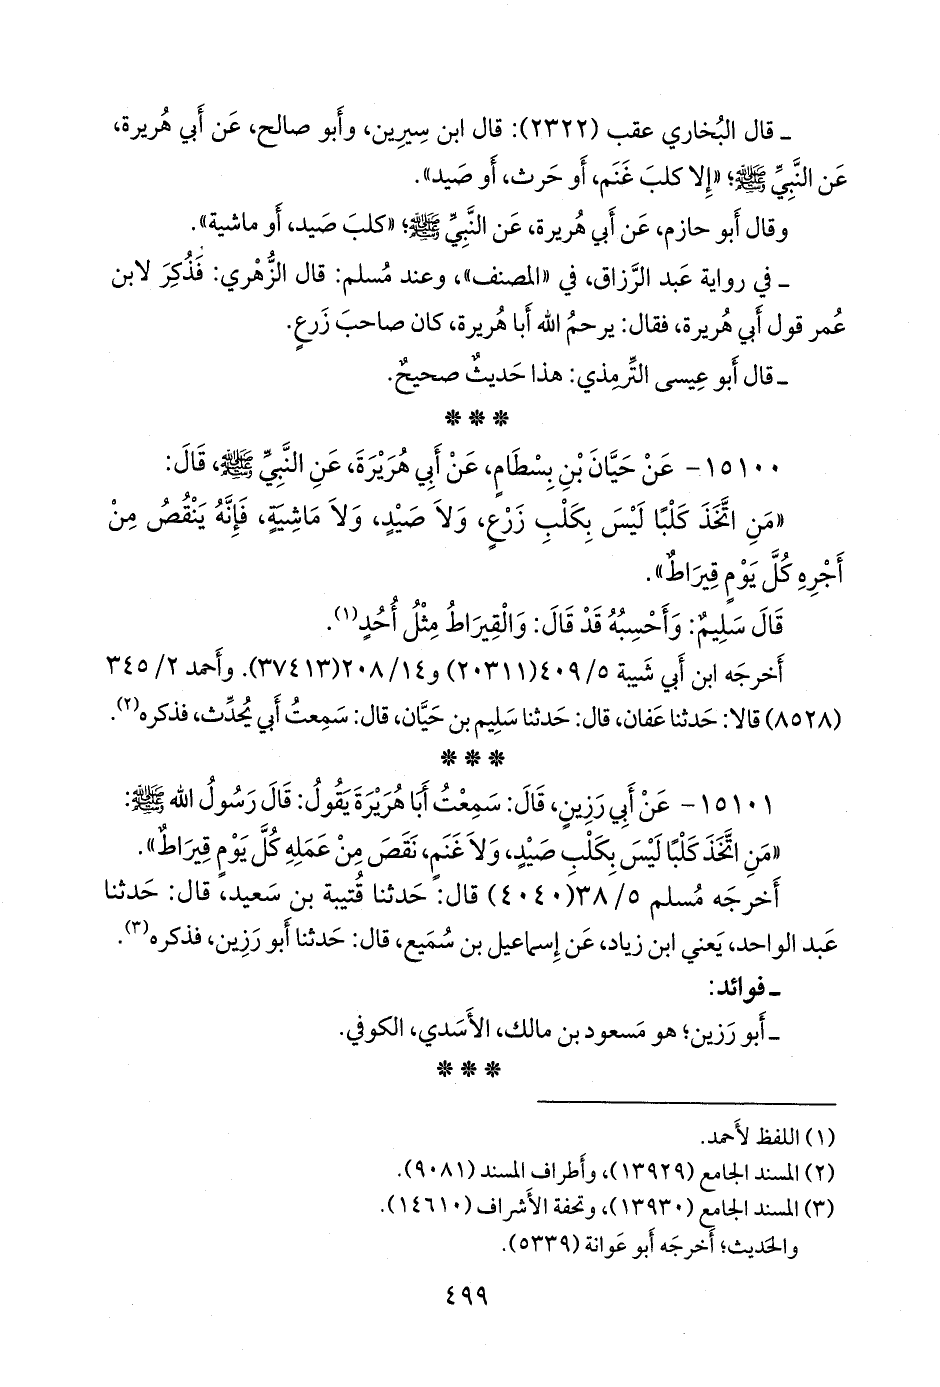 ـ قال البُخاري عقب (٢٣٢٢): قال ابن سِيرِين، وأَبو صالح، عَن أَبي هُريرة،
عَن النَّبيِّ ﷺ؛ «إِلا كلبَ غَنَم، أَو حَرث، أَو صَيد».
وقال أَبو حازم، عَن أَبي هُريرة، عَن النَّبيِّ ﷺ؛ «كلبَ صَيد، أَو ماشية».
ـ في رواية عَبد الرَّزاق، في «المصنف»، وعند مُسلم: قال الزُّهْري: فَذُكِرَ لابن
عُمر قول أَبي هُريرة، فقال: يرحمُ الله أَبا هُريرة، كان صاحبَ زَرعٍ.
ـ قال أَبو عِيسى التِّرمِذي: هذا حَديثٌ صحيحٌ.
* * *
١٥١٠٠- عَنْ حَيَّانَ بْنِ بِسْطَامٍ، عَنْ أَبِي هُرَيْرَةَ، عَنِ النَّبِيِّ ﷺ، قَالَ:
«مَنِ اتَّخَذَ كَلْبًا لَيْسَ بِكَلْبِ زَرْعٍ، وَلَا صَيْدٍ، وَلَا مَاشِيَةٍ، فَإِنَّهُ يَنْقُصُ مِنْ
أَجْرِهِ كُلَّ يَوْمٍ قِيرَاطٌ».
قَالَ سَلِيمٌ: وَأَحْسِبُهُ قَدْ قَالَ: وَالْقِيرَاطُ مِثْلُ أُحُدٍ(١).
أَخرجَه ابن أَبي شَيبة ٥/ ٤٠٩(٢٠٣١١) و١٤/ ٢٠٨(٣٧٤١٣). وأَحمد ٢/ ٣٤٥
(٨٥٢٨) قالا: حَدثنا عَفان، قال: حَدثنا سَلِيم بن حَيَّان، قال: سَمِعتُ أَبي يُحَدِّث، فذكره(٢).
* * *
١٥١٠١- عَنْ أَبِي رَزِينٍ، قَالَ: سَمِعْتُ أَبَا هُرَيْرَةَ يَقُولُ: قَالَ رَسُولُ الله ﷺ:
«مَنِ اتَّخَذَ كَلْبًا لَيْسَ بِكَلْبِ صَيْدٍ، وَلَا غَنَمٍ، نَقَصَ مِنْ عَمَلِهِ كُلَّ يَوْمٍ قِيرَاطٌ».
أَخرجَه مُسلم ٥/ ٣٨(٤٠٤٠) قال: حَدثنا قُتيبة بن سَعيد، قال: حَدثنا
عَبد الواحد، يَعني ابن زياد، عَن إِسماعيل بن سُمَيع، قال: حَدثنا أَبو رَزِين، فذكره(٣).
ـ فوائد:
ـ أَبو رَزين؛ هو مَسعود بن مالك، الأَسَدي، الكوفي.
* * *
(١) اللفظ لأَحمد.
(٢) المسند الجامع (١٣٩٢٩)، وأَطراف المسند (٩٠٨١).
(٣) المسند الجامع (١٣٩٣٠)، وتحفة الأَشراف (١٤٦١٠).
والحَديث؛ أَخرجَه أَبو عَوانة (٥٣٣٩).
٤٩٩